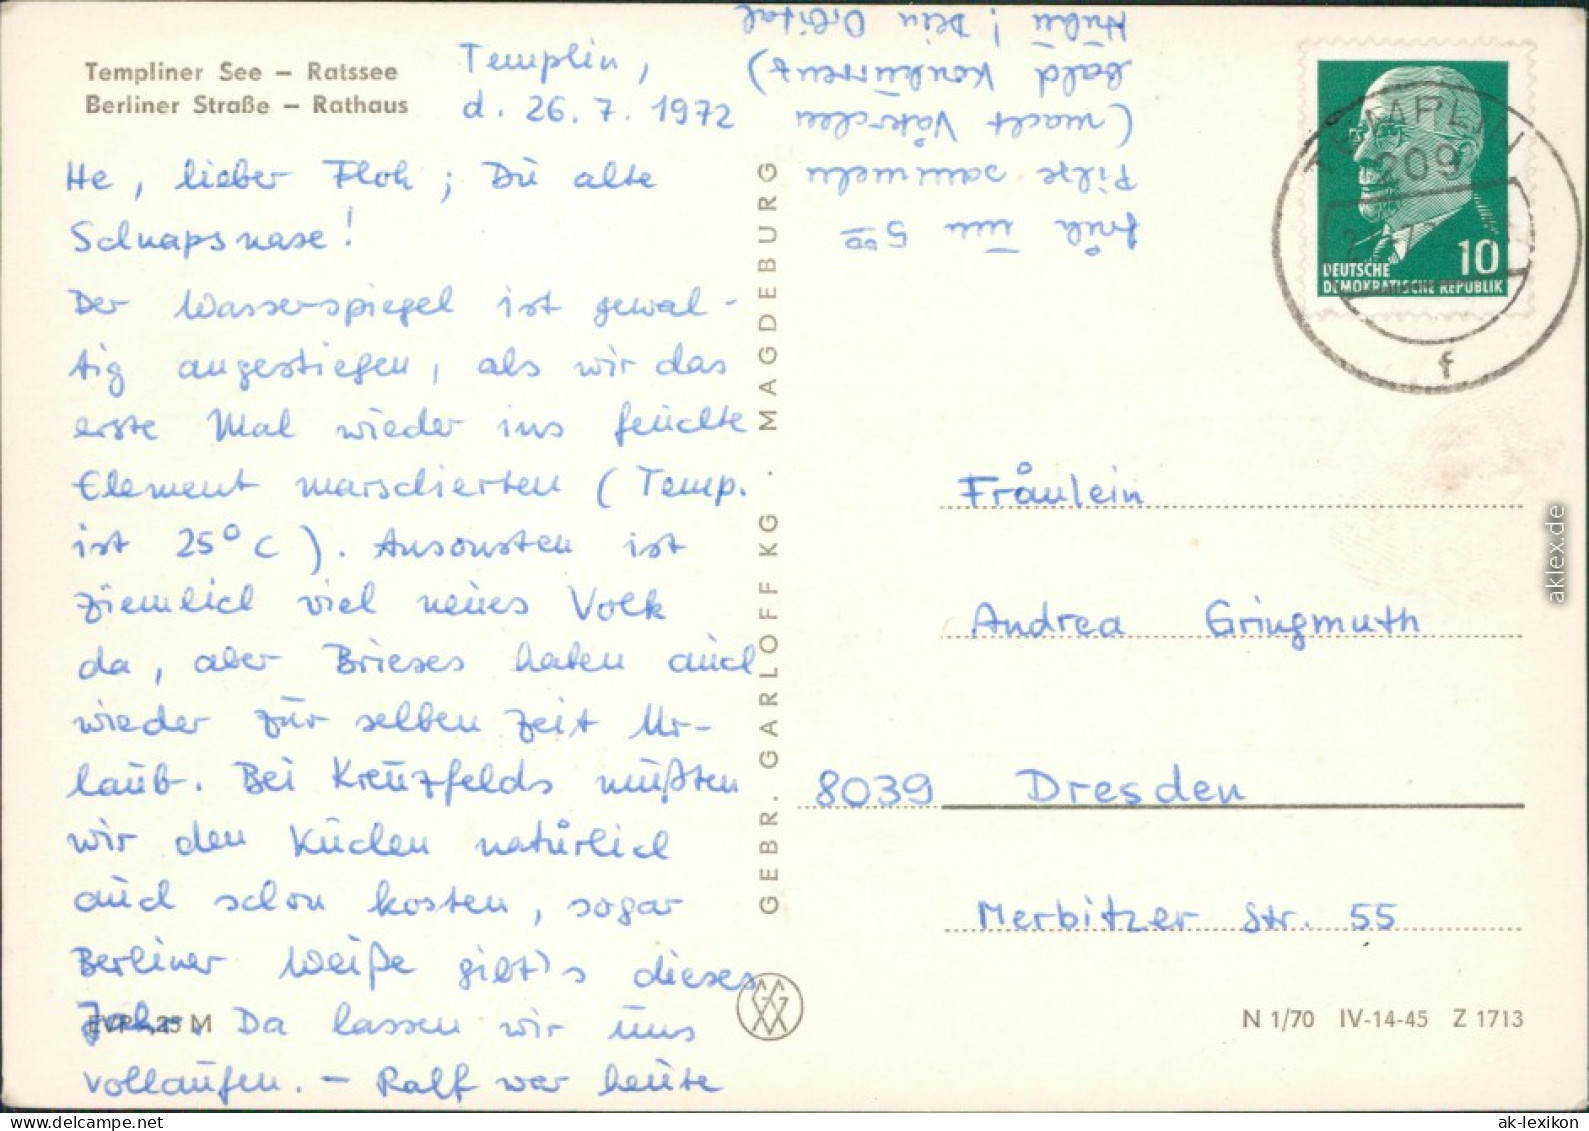 Templiner See – Ratssee
Berliner Straße – Rathaus
Templin,
d. 26. 7. 1972
He, lieber Floh; Du alte
Schnapsnase!
Der Wasserspiegel ist gewal-
tig angestiegen, als wir das
erste Mal wieder ins feuchte
Element marschierten (Temp.
ist 25° C). Ansonsten ist
ziemlich viel neues Volk
da, aber Brieses haben auch
wieder zur selben Zeit Ur-
laub. Bei Kreuzfelds mußten
wir den Kuchen natürlich
auch schon kosten, sogar
Berliner Weiße gibt's dieses
Jahr. Da lassen wir uns
vollaufen. – Ralf war heute
früh um 5 00
Pilze sammeln
(macht Väterchen
bald Konkurrenz)
dein
EVP -,25 M
GEBR. GARLOFF KG · MAGDEBURG
TEMPLIN
209
f
10
DEUTSCHE
DEMOKRATISCHE REPUBLIK
Fräulein
Andrea Gringmuth
8039 Dresden
Merbitzer Str. 55
N 1/70 IV-14-45 Z 1713
aklex.de
www.delcampe.net
ak-lexikon